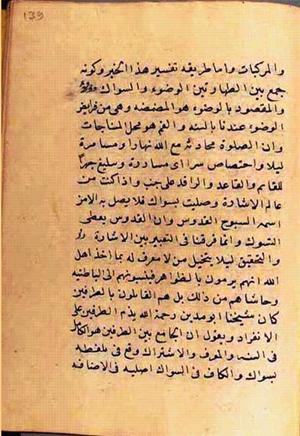 139
والمركبات واما طريقه تفسير هذا الخبر وكونه
جمع بين الطهارتين الوضوء والسواك
والمقصود بالوضوء هو المضمضه وهي من فرايض
الوضوء عندنا بالسنه والفم هو محل المناجات
وان الصلوة محادثه مع الله نهارا ومسامرة
ليلا واختصاص سر اى مساررة وسليغ جهرا
للقايم والقاعد والراقد على جنب واذا كنت من
عالم الاشارة وصليت بسواك فلا يصل به الا من
اسمه السبوح القدوس وان القدوس يعطى
السواك وانما فرقنا في التعبير بين الاشارة
والتحقيق ليلا يتخيل من لا معرفة له بما اخذ اهل
الله انهم يرمون بالظواهر فينسبونهم الى الباطنيه
وحاشاهم من ذلك بل هم القايلون بالطرفين
كان شيخنا ابو مدين رحمة الله يذم الطرفين على
الانفراد ويقول ان الجامع بين الطرفين هو الكامل
في السنه والمعرفه والاشتراك وقع في بلفظه
بسواك والكاف في السواك اصليه في الاضافه